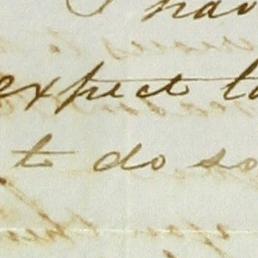 I hav
expect to
t do so